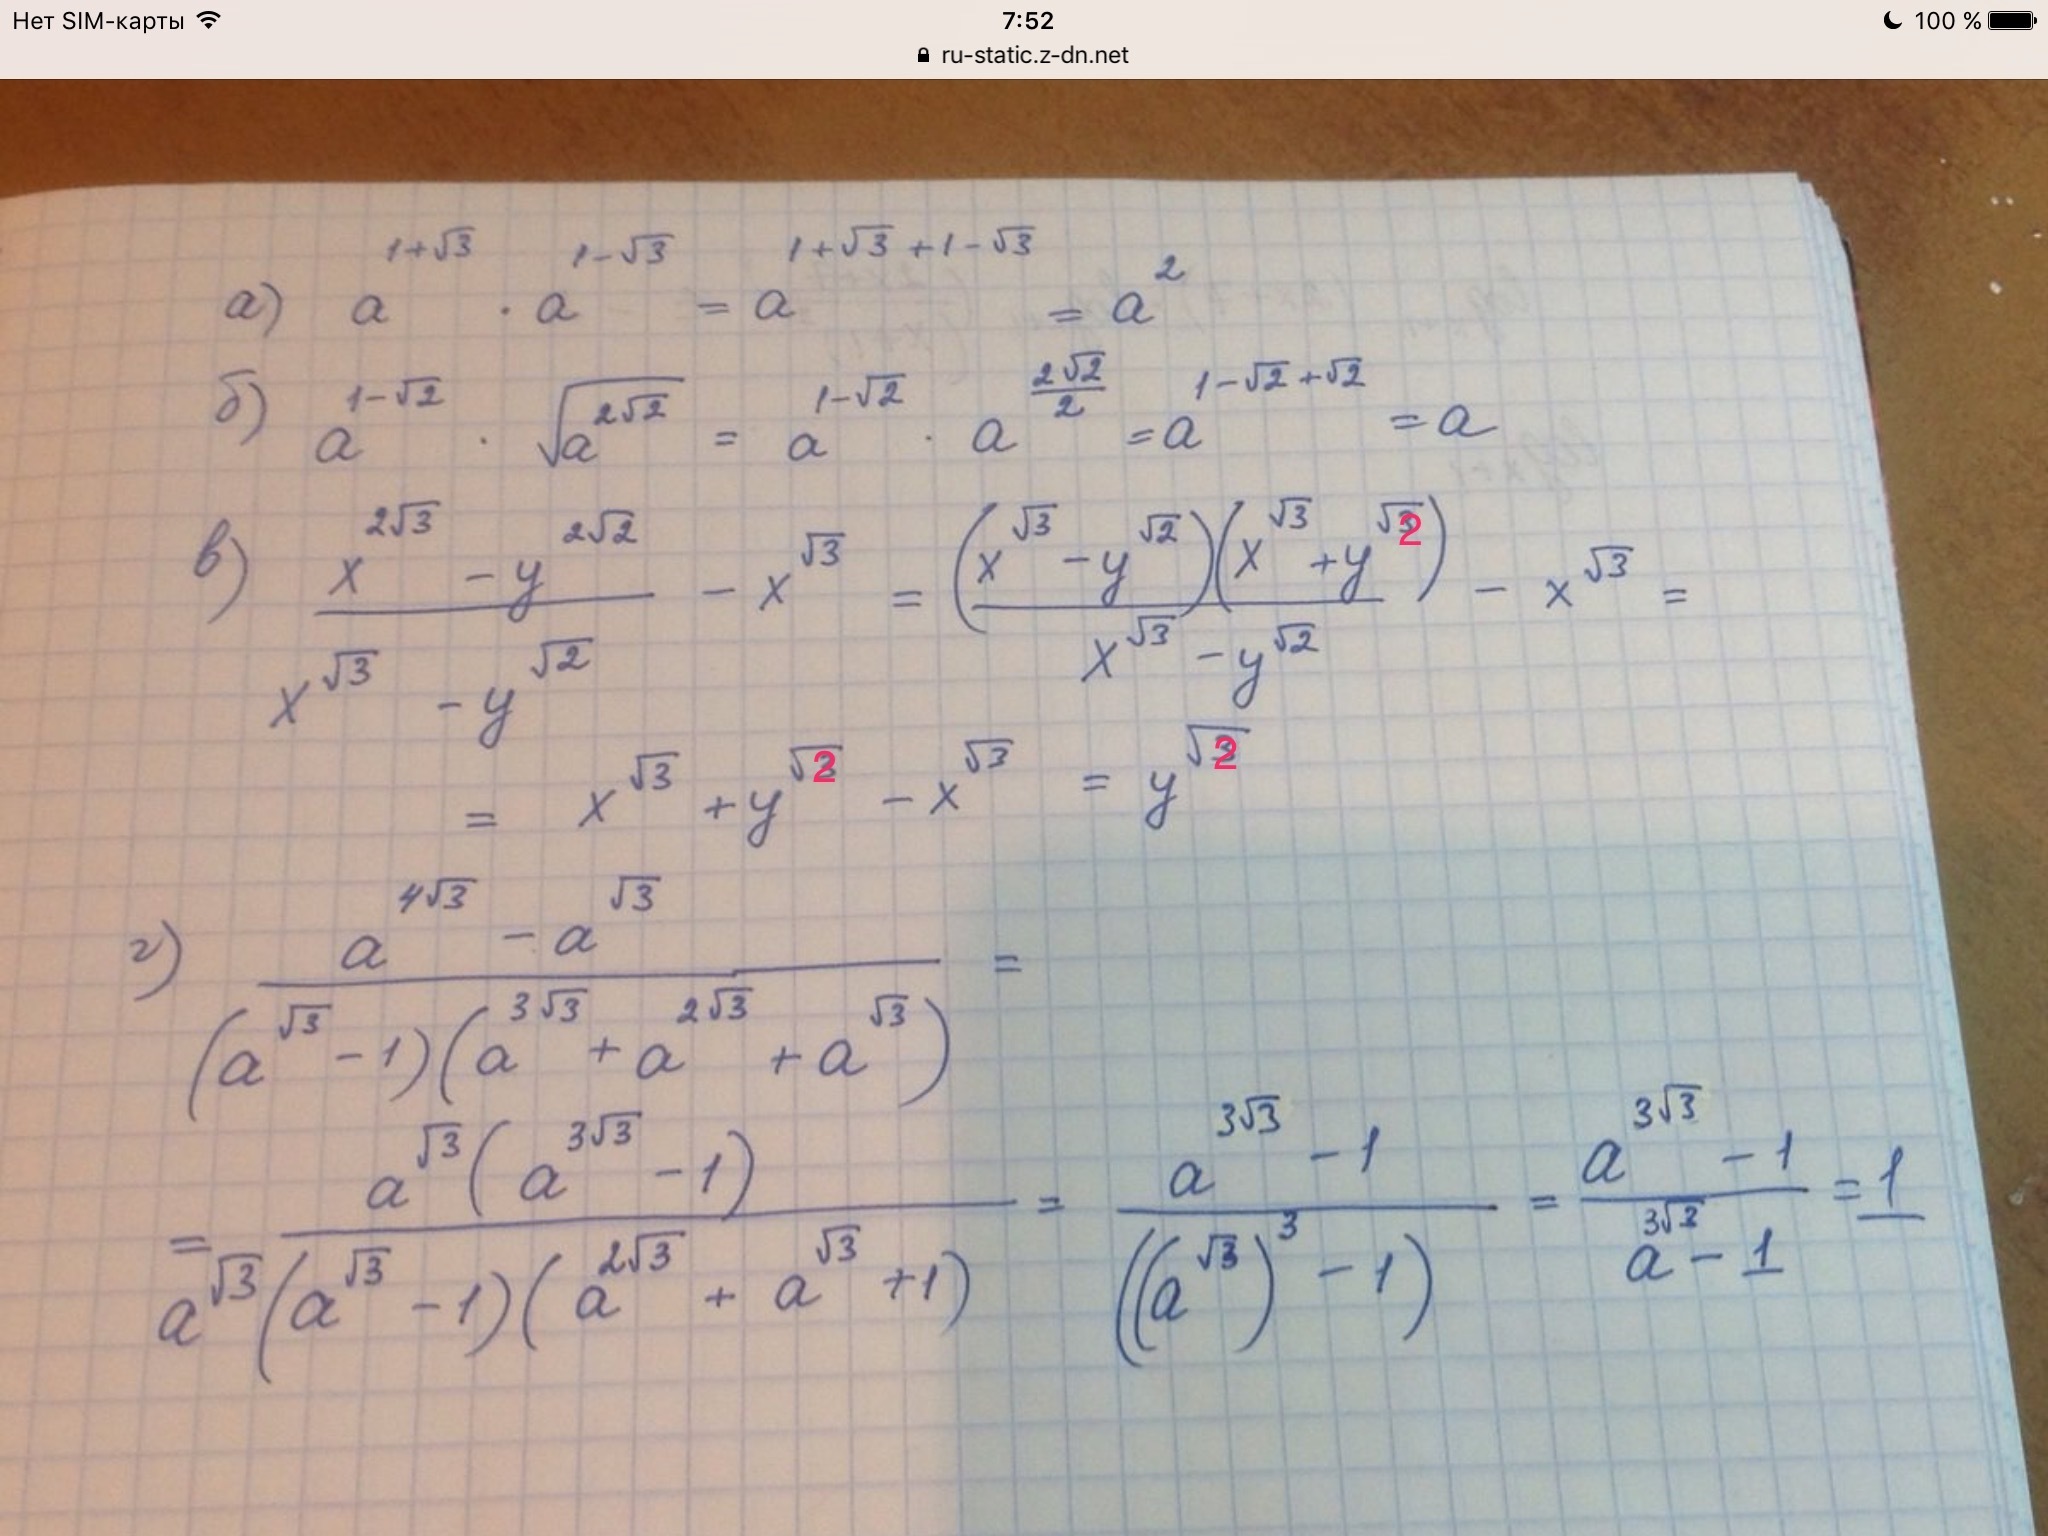 Нет SIM-карты 7:52 100 %
ru-static.z-dn.net
а) a^(1+√3) · a^(1-√3) = a^(1+√3+1-√3) = a^2
б) a^(1-√2) · √(a^(2√2)) = a^(1-√2) · a^(2√2/2) = a^(1-√2+√2) = a
в) (x^(2√3) - y^(2√2)) / (x^√3 - y^√2) - x^√3 = (x^√3 - y^√2)(x^√3 + y^√2) / (x^√3 - y^√2) - x^√3 =
= x^√3 + y^√2 - x^√3 = y^√2
г) (a^(4√3) - a^√3) / ((a^√3 - 1)(a^(3√3) + a^(2√3) + a^√3)) =
= a^√3(a^(3√3) - 1) / (a^√3(a^√3 - 1)(a^(2√3) + a^√3 + 1)) = (a^(3√3) - 1) / ((a^√3)^3 - 1) = (a^(3√3) - 1) / (a^(3√3) - 1) = 1